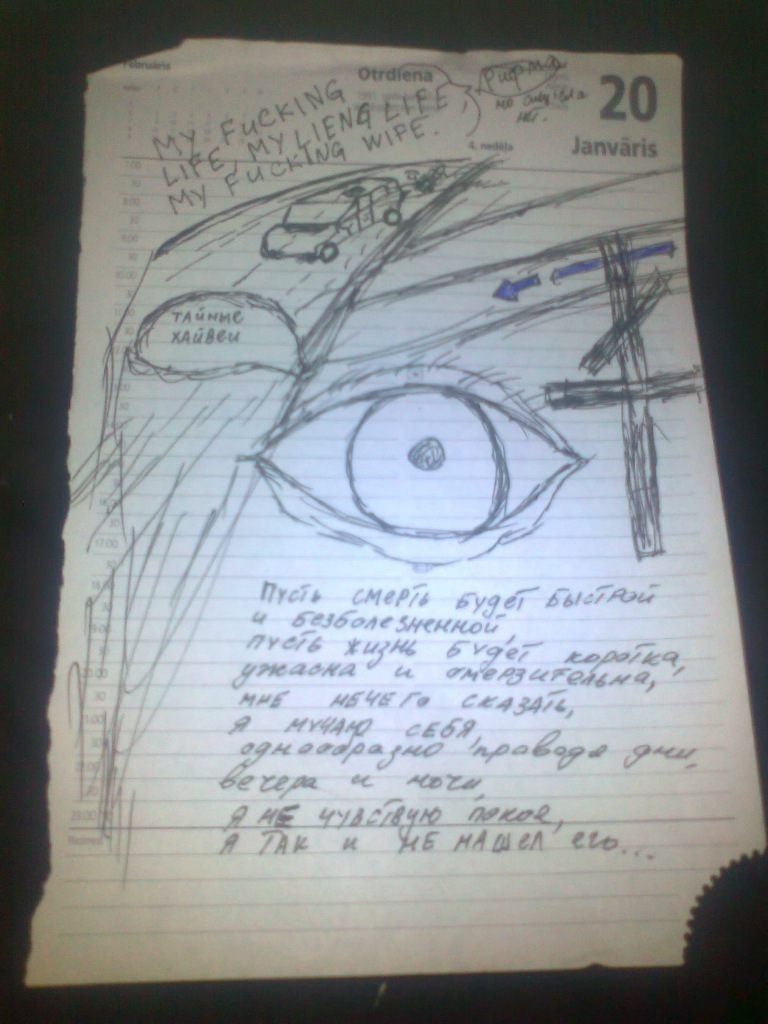 Februāris
Otrdiena
20
Janvāris
4. nedēļa
MY FUCKING
LIFE, MY LIENG LIFE,
MY FUCKING WIPE.
Рифма
но
ТАЙНЫЕ
ХАЙВЕИ
Пусть смерть будет быстрой
и безболезненной,
пусть жизнь будет коротка,
ужасна и омерзительна,
мне нечего сказать,
я мучаю себя,
однообразно правода дни,
вечера и ночи,
я не чувствую покоя,
я так и не нашел его...